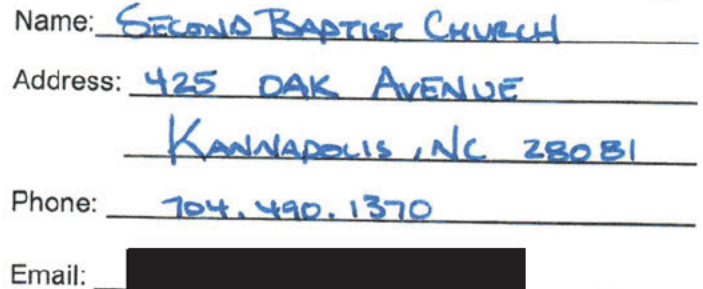 Name: SECOND BAPTIST CHURCH
Address: 425 OAK AVENUE
KANNAPOLIS, NC 28081
Phone: 704.490.1370
Email: